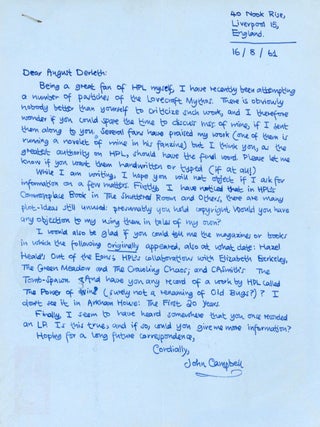 40 Nook Rise,
Liverpool 15,
England.
16/8/61
Dear August Derleth:
Being a great fan of HPL myself, I have recently been attempting
a number of pastiches of the Lovecraft Mythos. There is obviously
nobody better than yourself to criticize such work, and I therefore
wonder if you could spare the time to discuss mss of mine, if I sent
them along to you. Several fans have praised my work (one of them is
running a novelet of mine in his fanzine) but I think you, as the
greatest authority on HPL, should have the final word. Please let me
know if you want them handwritten or typed (if at all)
While I am writing, I hope you will not object if I ask for
information on a few matters. Firstly, I have noticed that in HPL's
Commonplace Book in The Shuttered Room and Others, there are many
plot-ideas still unused: presumably you hold copyright. Would you have
any objection to my using them in tales of my own?
I would also be glad if you could tell me the magazines or books
in which the following originally appeared, also at what date: Hazel
Heald's Out of the Eons; HPL's collaborations with Elizabeth Berkeley,
The Green Meadow and The Crawling Chaos; and CASmith's The
Tomb-Spawn. And have you any record of a work by HPL called
The Power of Wine (surely not a renaming of Old Bugs?)? I
don't see it in Arkham House: The First 20 Years.
Finally, I seem to have heard somewhere that you once recorded
an LP. Is this true, and if so, could you give me more information?
Hoping for a long future correspondence,
Cordially,
John Campbell